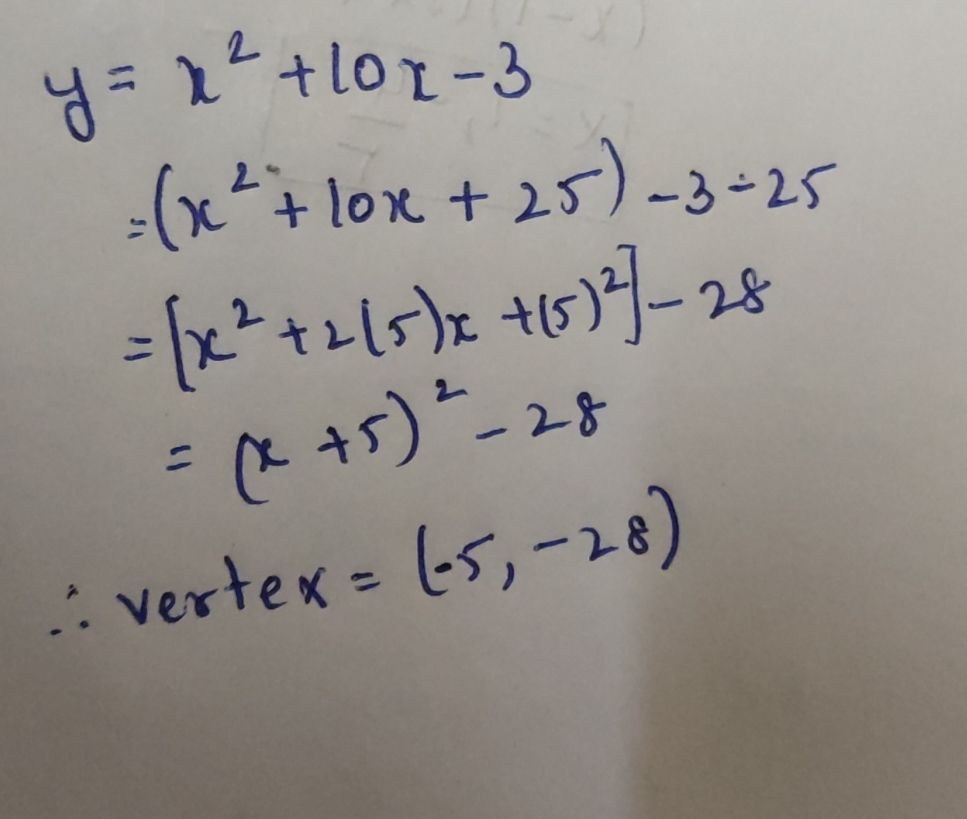 y = x² + 10x - 3
= (x² + 10x + 25) - 3 - 25
= [x² + 2(5)x + (5)²] - 28
= (x + 5)² - 28
∴ vertex = (-5, -28)